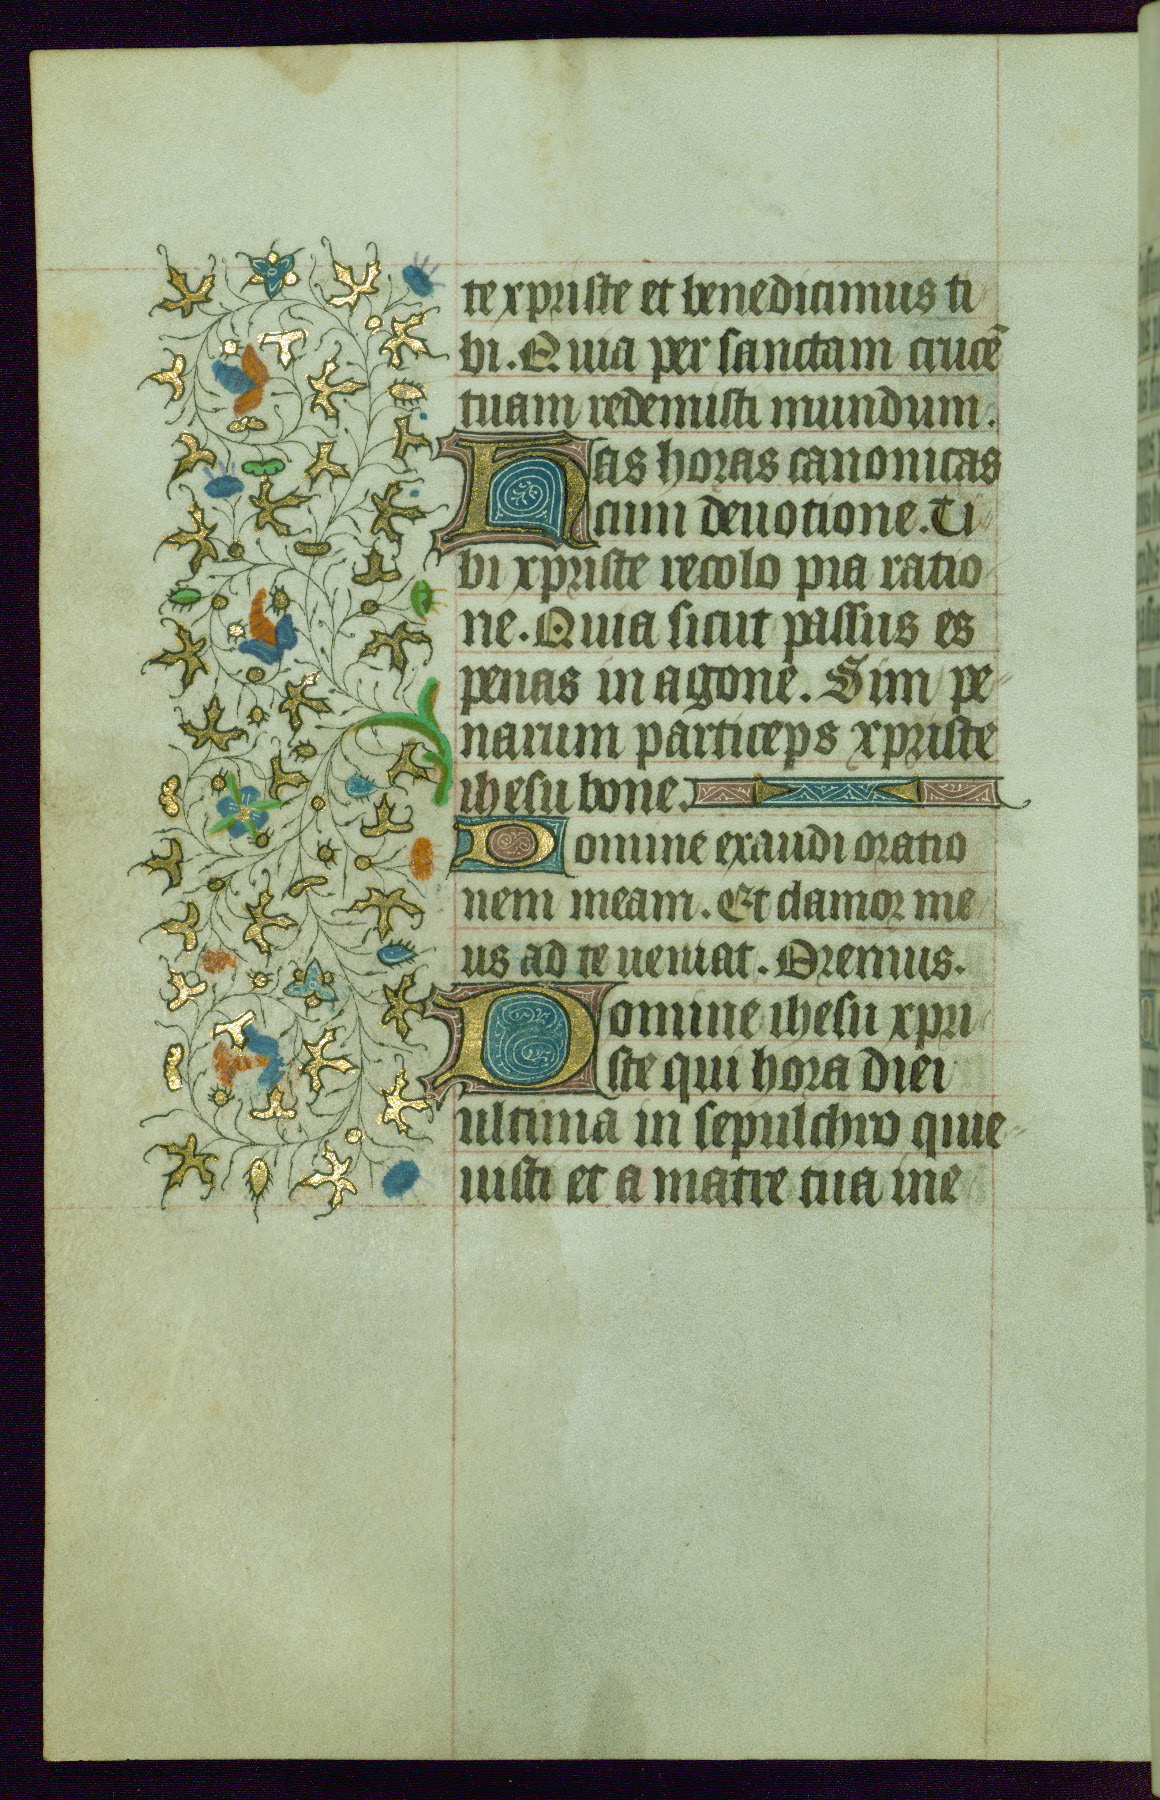 te xpriste et benedicimus ti
bi. Quia per sanctam crucē
tuam redemisti mundum.
Has horas canonicas
cum deuotione. Ti
bi xpriste recolo pia ratio
ne. Quia sicut passus es
penas in agone. Sim pe
narum particeps xpriste
ihesu bone.
Domine exaudi oratio
nem meam. Et clamor me
us ad te ueniat. Oremus.
Domine ihesu xpri
ste qui hora diei
ultima in sepulchro quie
uisti et a matre tua me